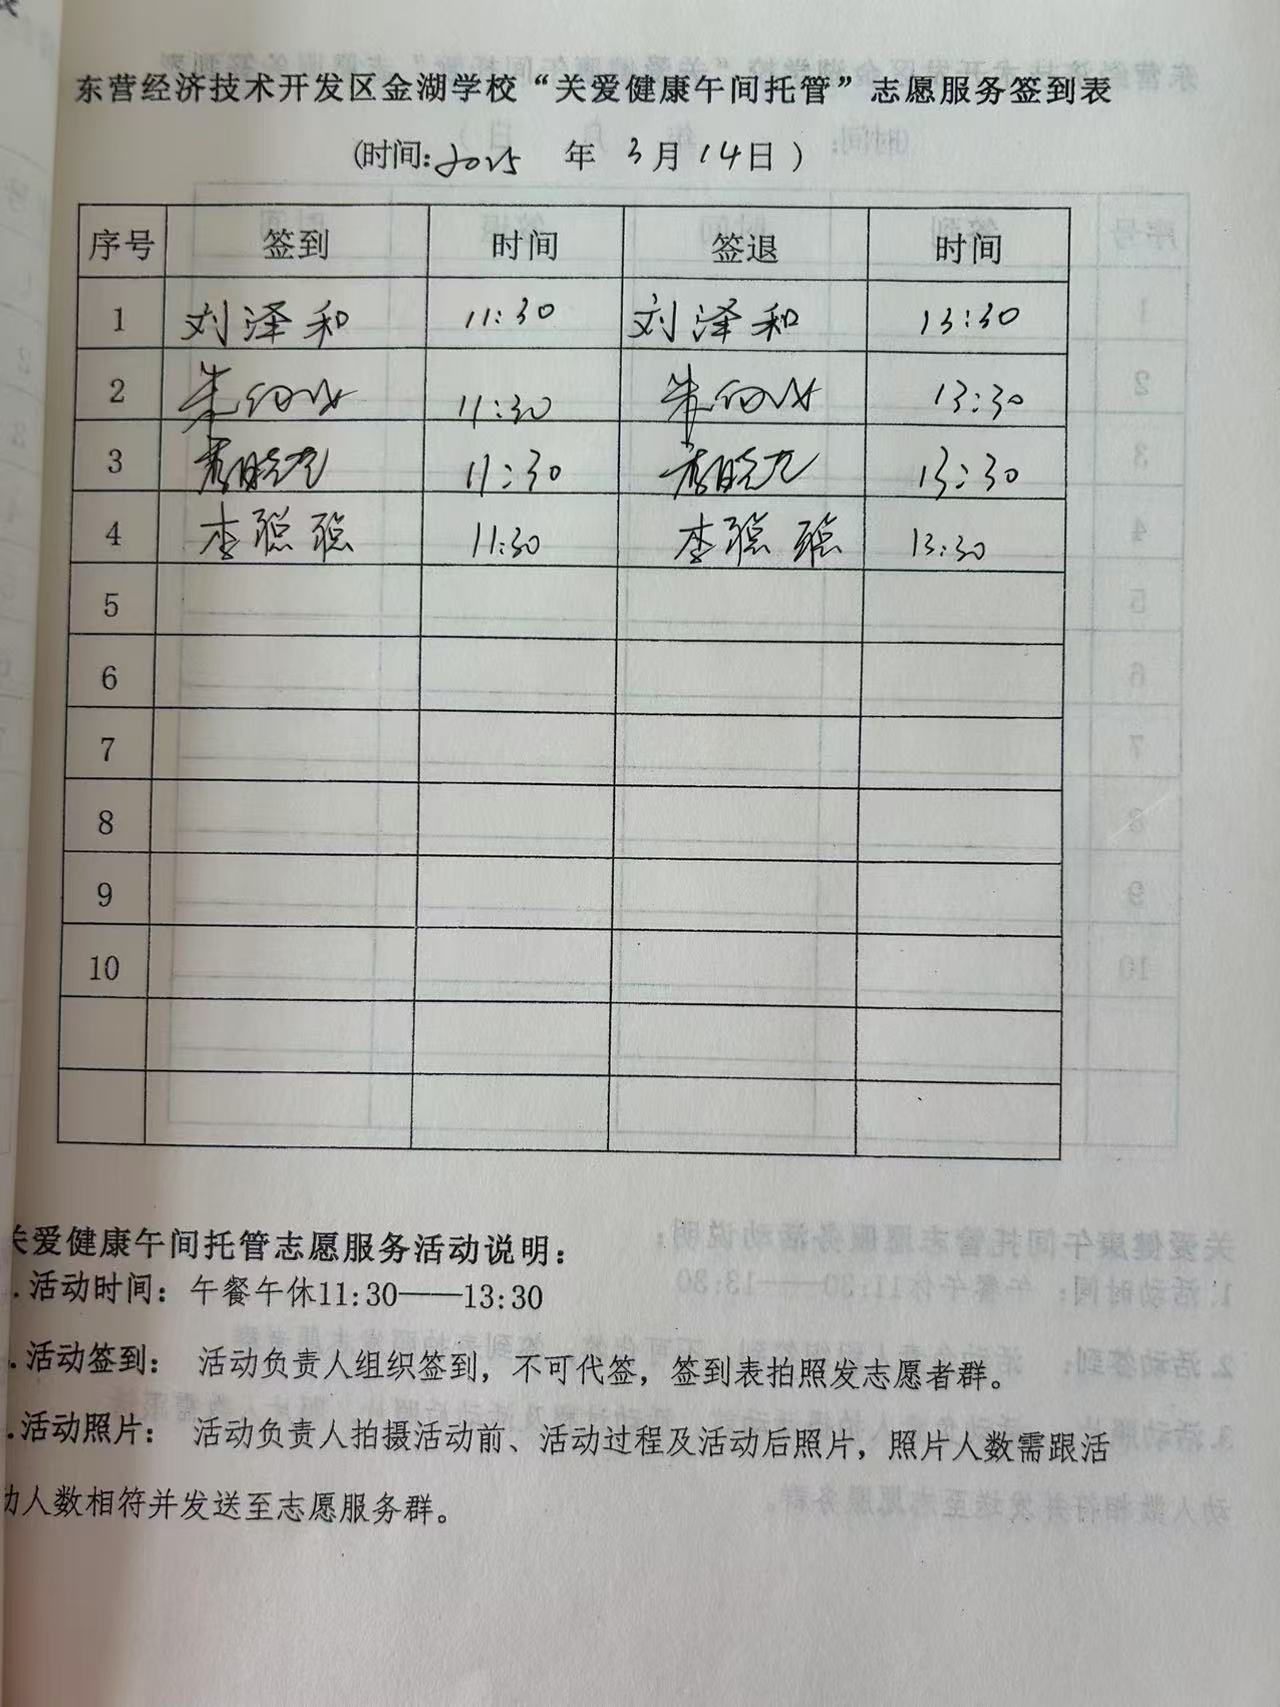 东营经济技术开发区金湖学校“关爱健康午间托管”志愿服务签到表
(时间:2025 年 3月14日)
序号 签到 时间 签退 时间
1 刘泽和 11:30 刘泽和 13:30
2 朱 11:30 朱 13:30
3 11:30 13:30
4 李聪聪 11:30 李聪聪 13:30
5
6
7
8
9
10
关爱健康午间托管志愿服务活动说明：
.活动时间：午餐午休11:30——13:30
.活动签到： 活动负责人组织签到，不可代签，签到表拍照发志愿者群。
.活动照片： 活动负责人拍摄活动前、活动过程及活动后照片，照片人数需跟活
动人数相符并发送至志愿服务群。